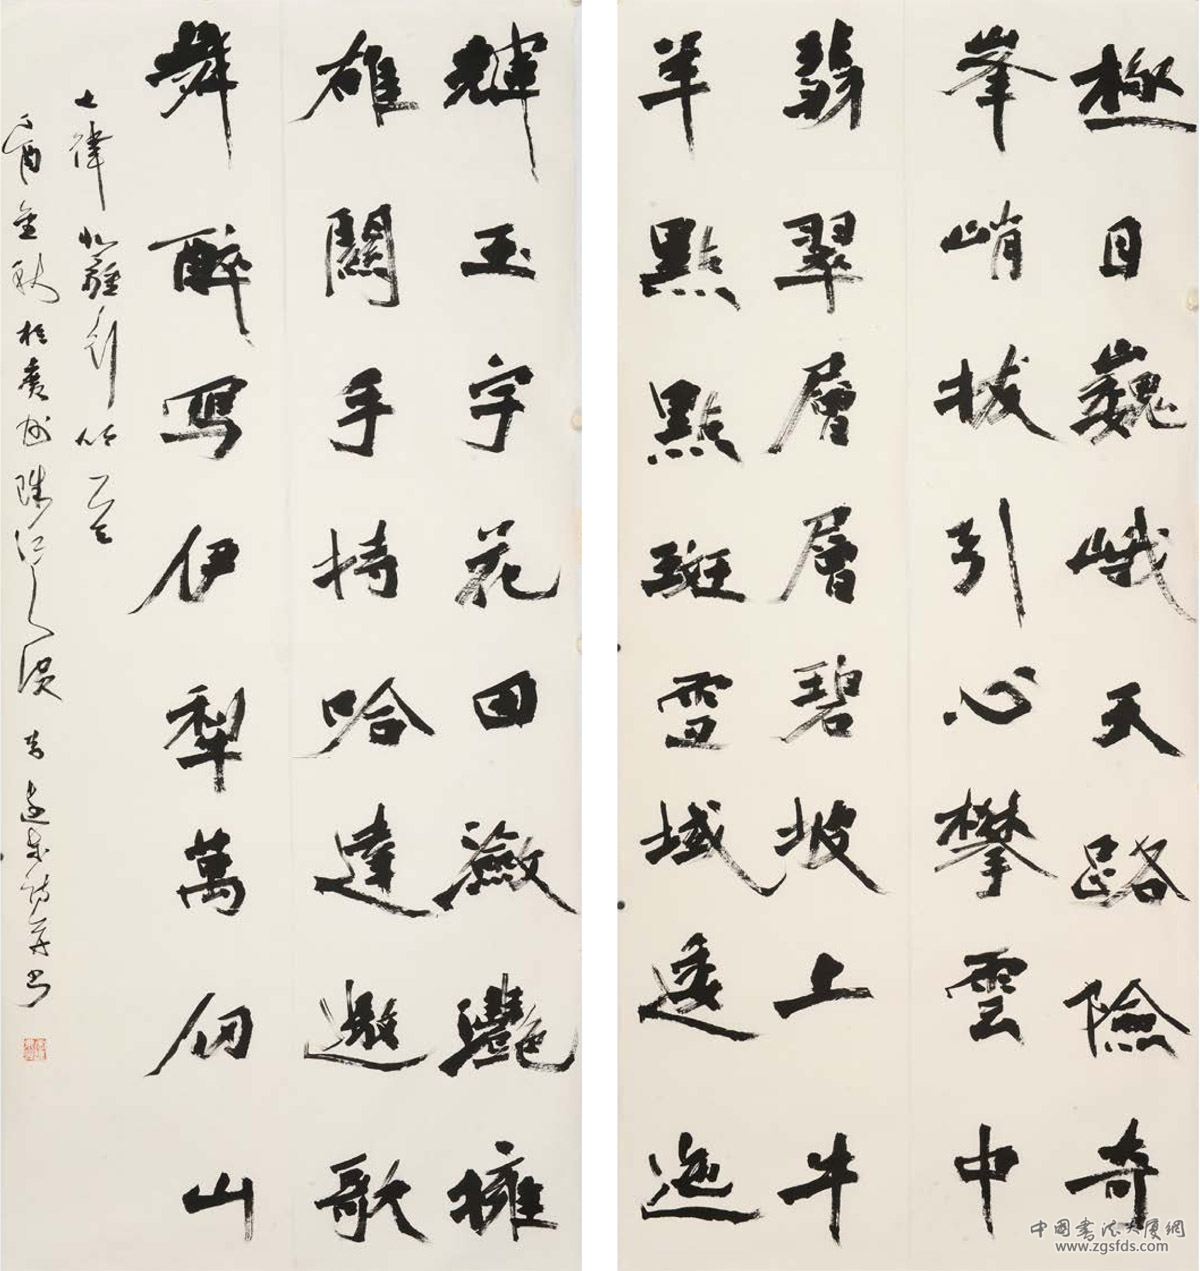 極目巍峨天路險奇
峯峭拔引心攀雲中
翡翠層層碧坡上牛
羊點點斑雪域逶迤
輝玉宇花田瀲灩擁
雄關手持哈達邀歌
舞醉写伊犁萬仞山
七律北疆行吟
丁酉金秋於廣州珠江之濱
中國書法大廈網
www.zgsfds.com